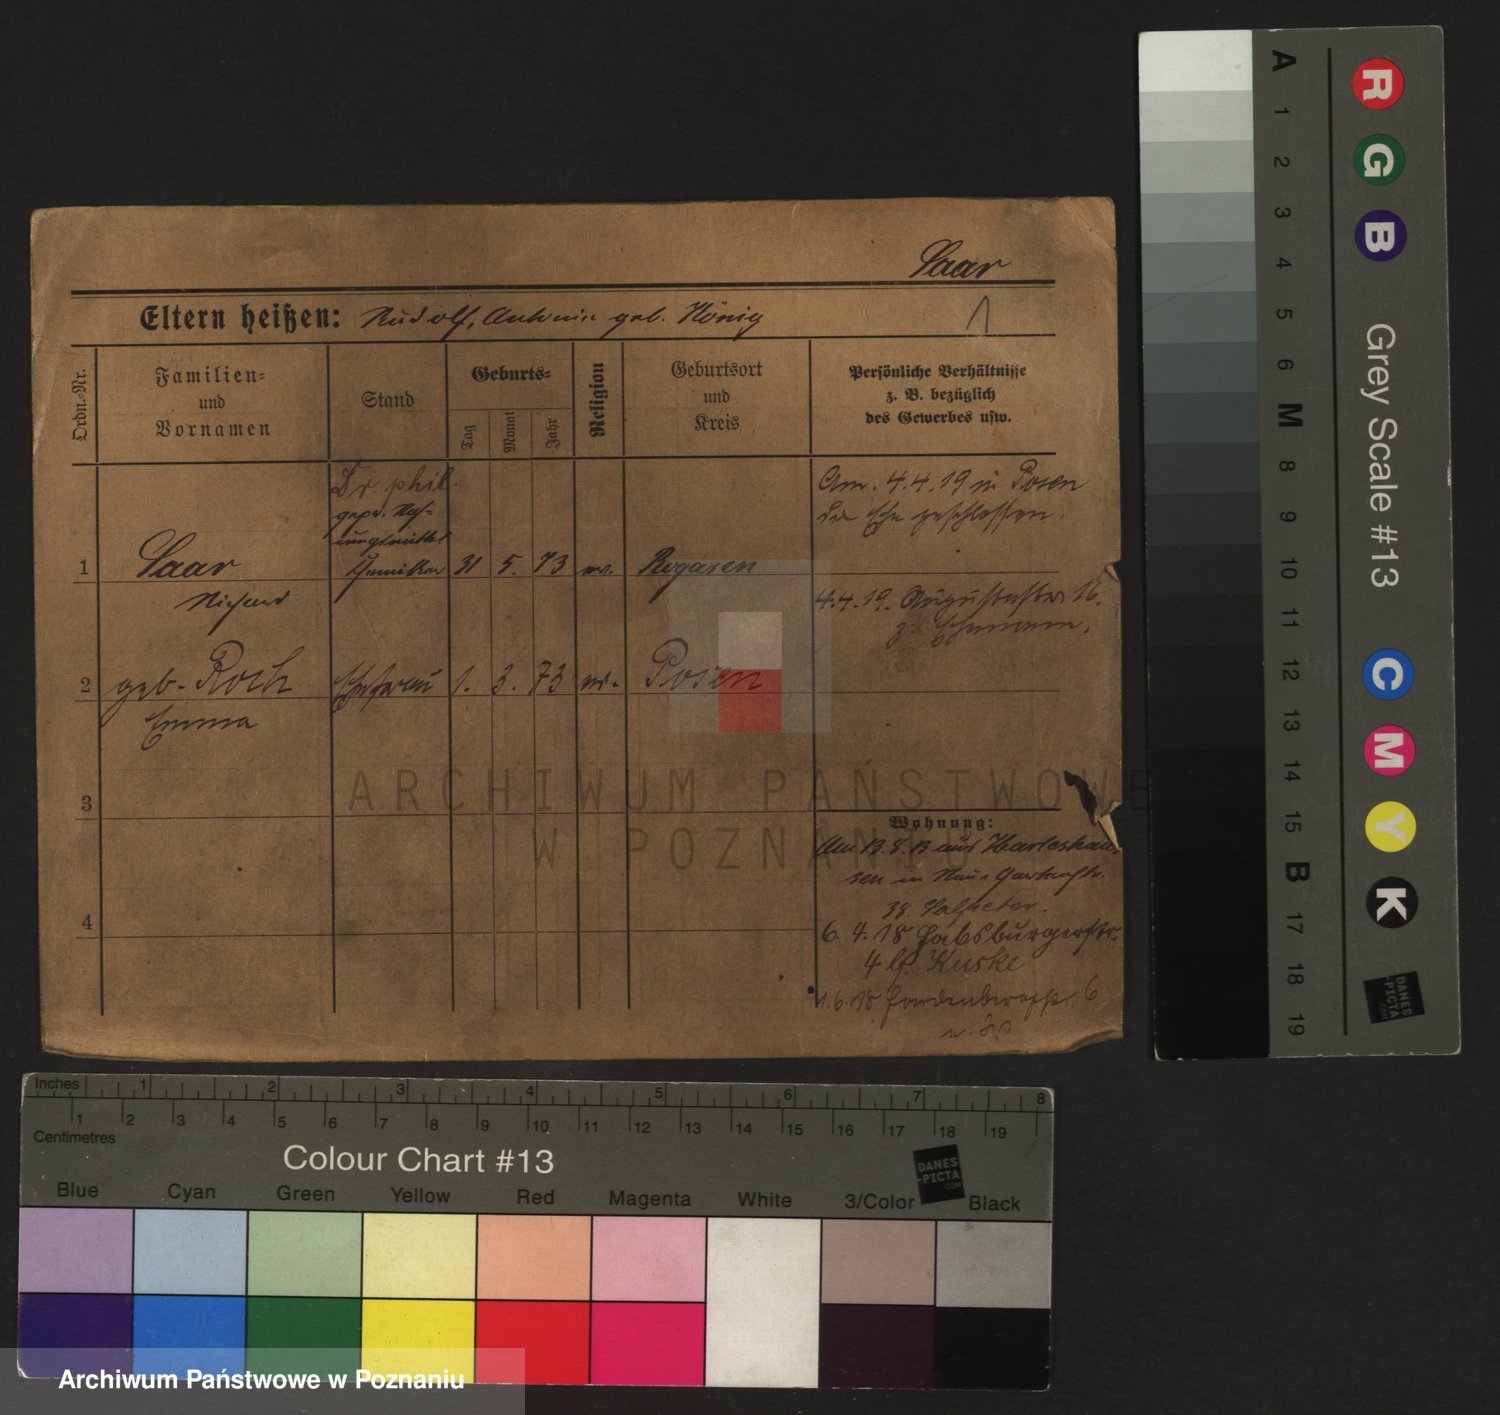 Saar
Eltern heißen: Rudolf, Antonie geb. König
1
Ordn.-Nr.
Familien-
und
Vornamen
Stand
Geburts-
Tag
Monat
Jahr
Religion
Geburtsort
und
Kreis
Persönliche Verhältnisse
z. B. bezüglich
des Gewerbes usw.
Dr phil.
gepr. Nah-
rungsmittel
Chemiker
1
Saar
31 5. 73 ev.
Rogasen
Richard
Am. 4.4.19 in Posen
die Ehe geschlossen.
4.4.19. Augustastr 16.
z. Ehemann.
2
geb. Roth
Ehefrau
1. 3. 73 ev.
Posen
Emma
3
4
Wohnung:
Am 13.8.13 aus Harleshau-
sen in Neue Gartenstr.
38.
6. 4. 18 Habsburgerstr.
4 b. Kuske
1.6.18 Hardenbergstr. 6
ARCHIWUM PAŃSTWOWE
W POZNANIU
A 1 2 3 4 5 6 M 8 9 10 11 12 13 14 15 B 17 18 19
R G B
Grey Scale #13
C M Y K
DANES
-PICTA
.COM
Inches 1 2 3 4 5 6 7 8
1 2 3 4 5 6 7 8 9 10 11 12 13 14 15 16 17 18 19
Centimetres
Colour Chart #13
DANES
-PICTA
.COM
Blue Cyan Green Yellow Red Magenta White 3/Color Black
Archiwum Państwowe w Poznaniu